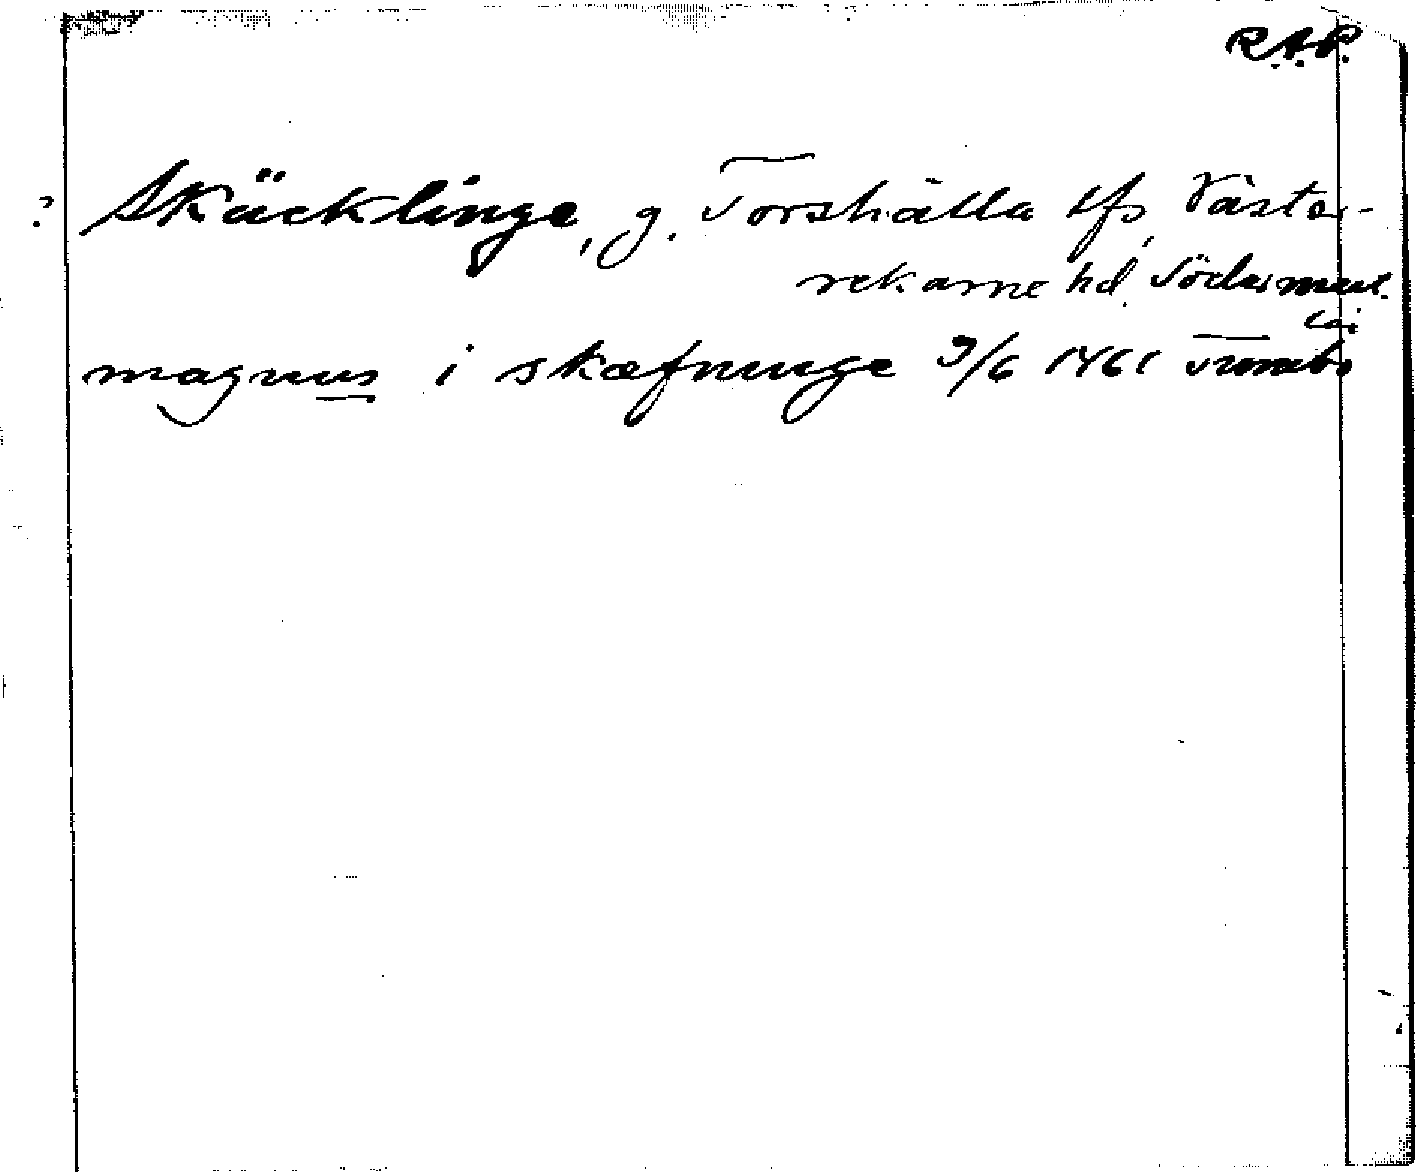 R.A.P.
? Skäcklinge, g. Torshälla lfs, Väster-
rekarne hd, Söderman.
magnus i skæfnunge 9/6 1461